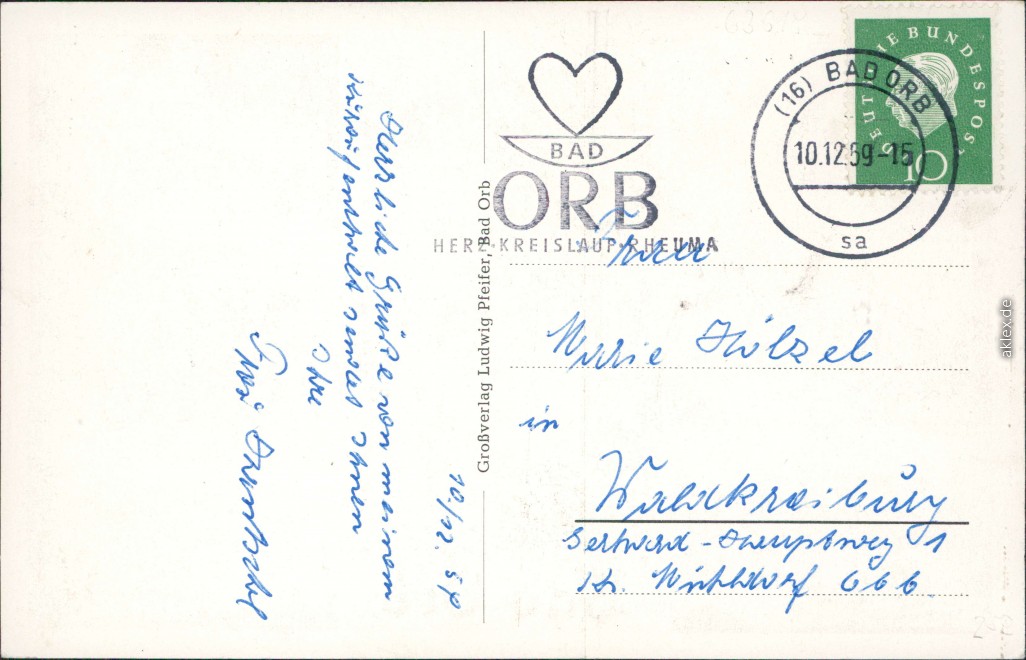 Herzliche Grüße von meinem
Kuraufenthalt sendet Ihnen
Ihre
10./12. 59
Großverlag Ludwig Pfeifer, Bad Orb
BAD
ORB
HERZ·KREISLAUF·RHEUMA
(16) BAD ORB
10.12.59-15
sa
DEUTSCHE BUNDESPOST
10
Frau
Marie Hölzel
in
Waldkraiburg
1
Kr. Mühldorf Obb.
aklex.de